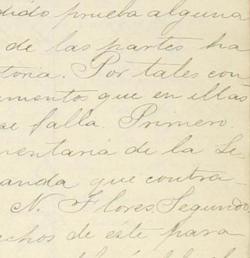 dido prueba alguna
de las partes ha
toria. Por tales con
amento que en ellas
se falla. Primero
mentaria de la Se
anda que contra
N. Flores, Segundo,
echos de este para